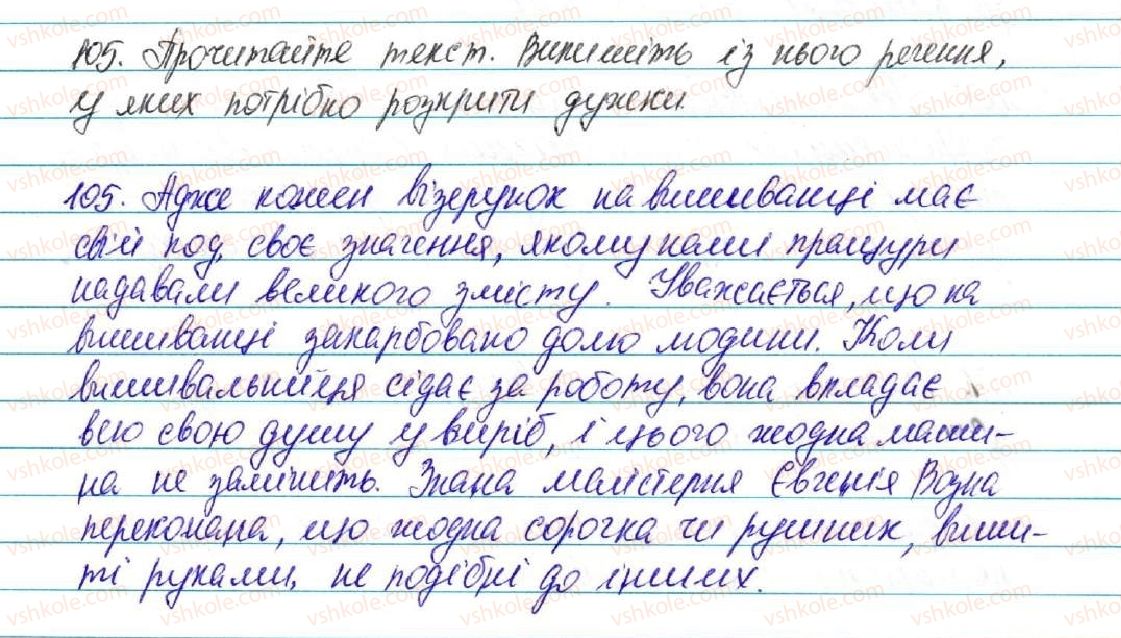 105. Прочитайте текст. Випишіть із нього речення,
у яких потрібно розкрити дужки.
105. Адже кожен візерунок на вишиванці має
свій код, своє значення, якому наші пращури
надавали великого змісту. Уважається, що на
вишиванці закарбовано долю людини. Коли
вишивальниця сідає за роботу, вона вкладає
всю свою душу у виріб, і цього жодна маши-
на не замінить. Знана майстерня Євгенія Возна
переконана, що жодна сорочка чи рушник, виши-
ті руками, не подібні до інших.